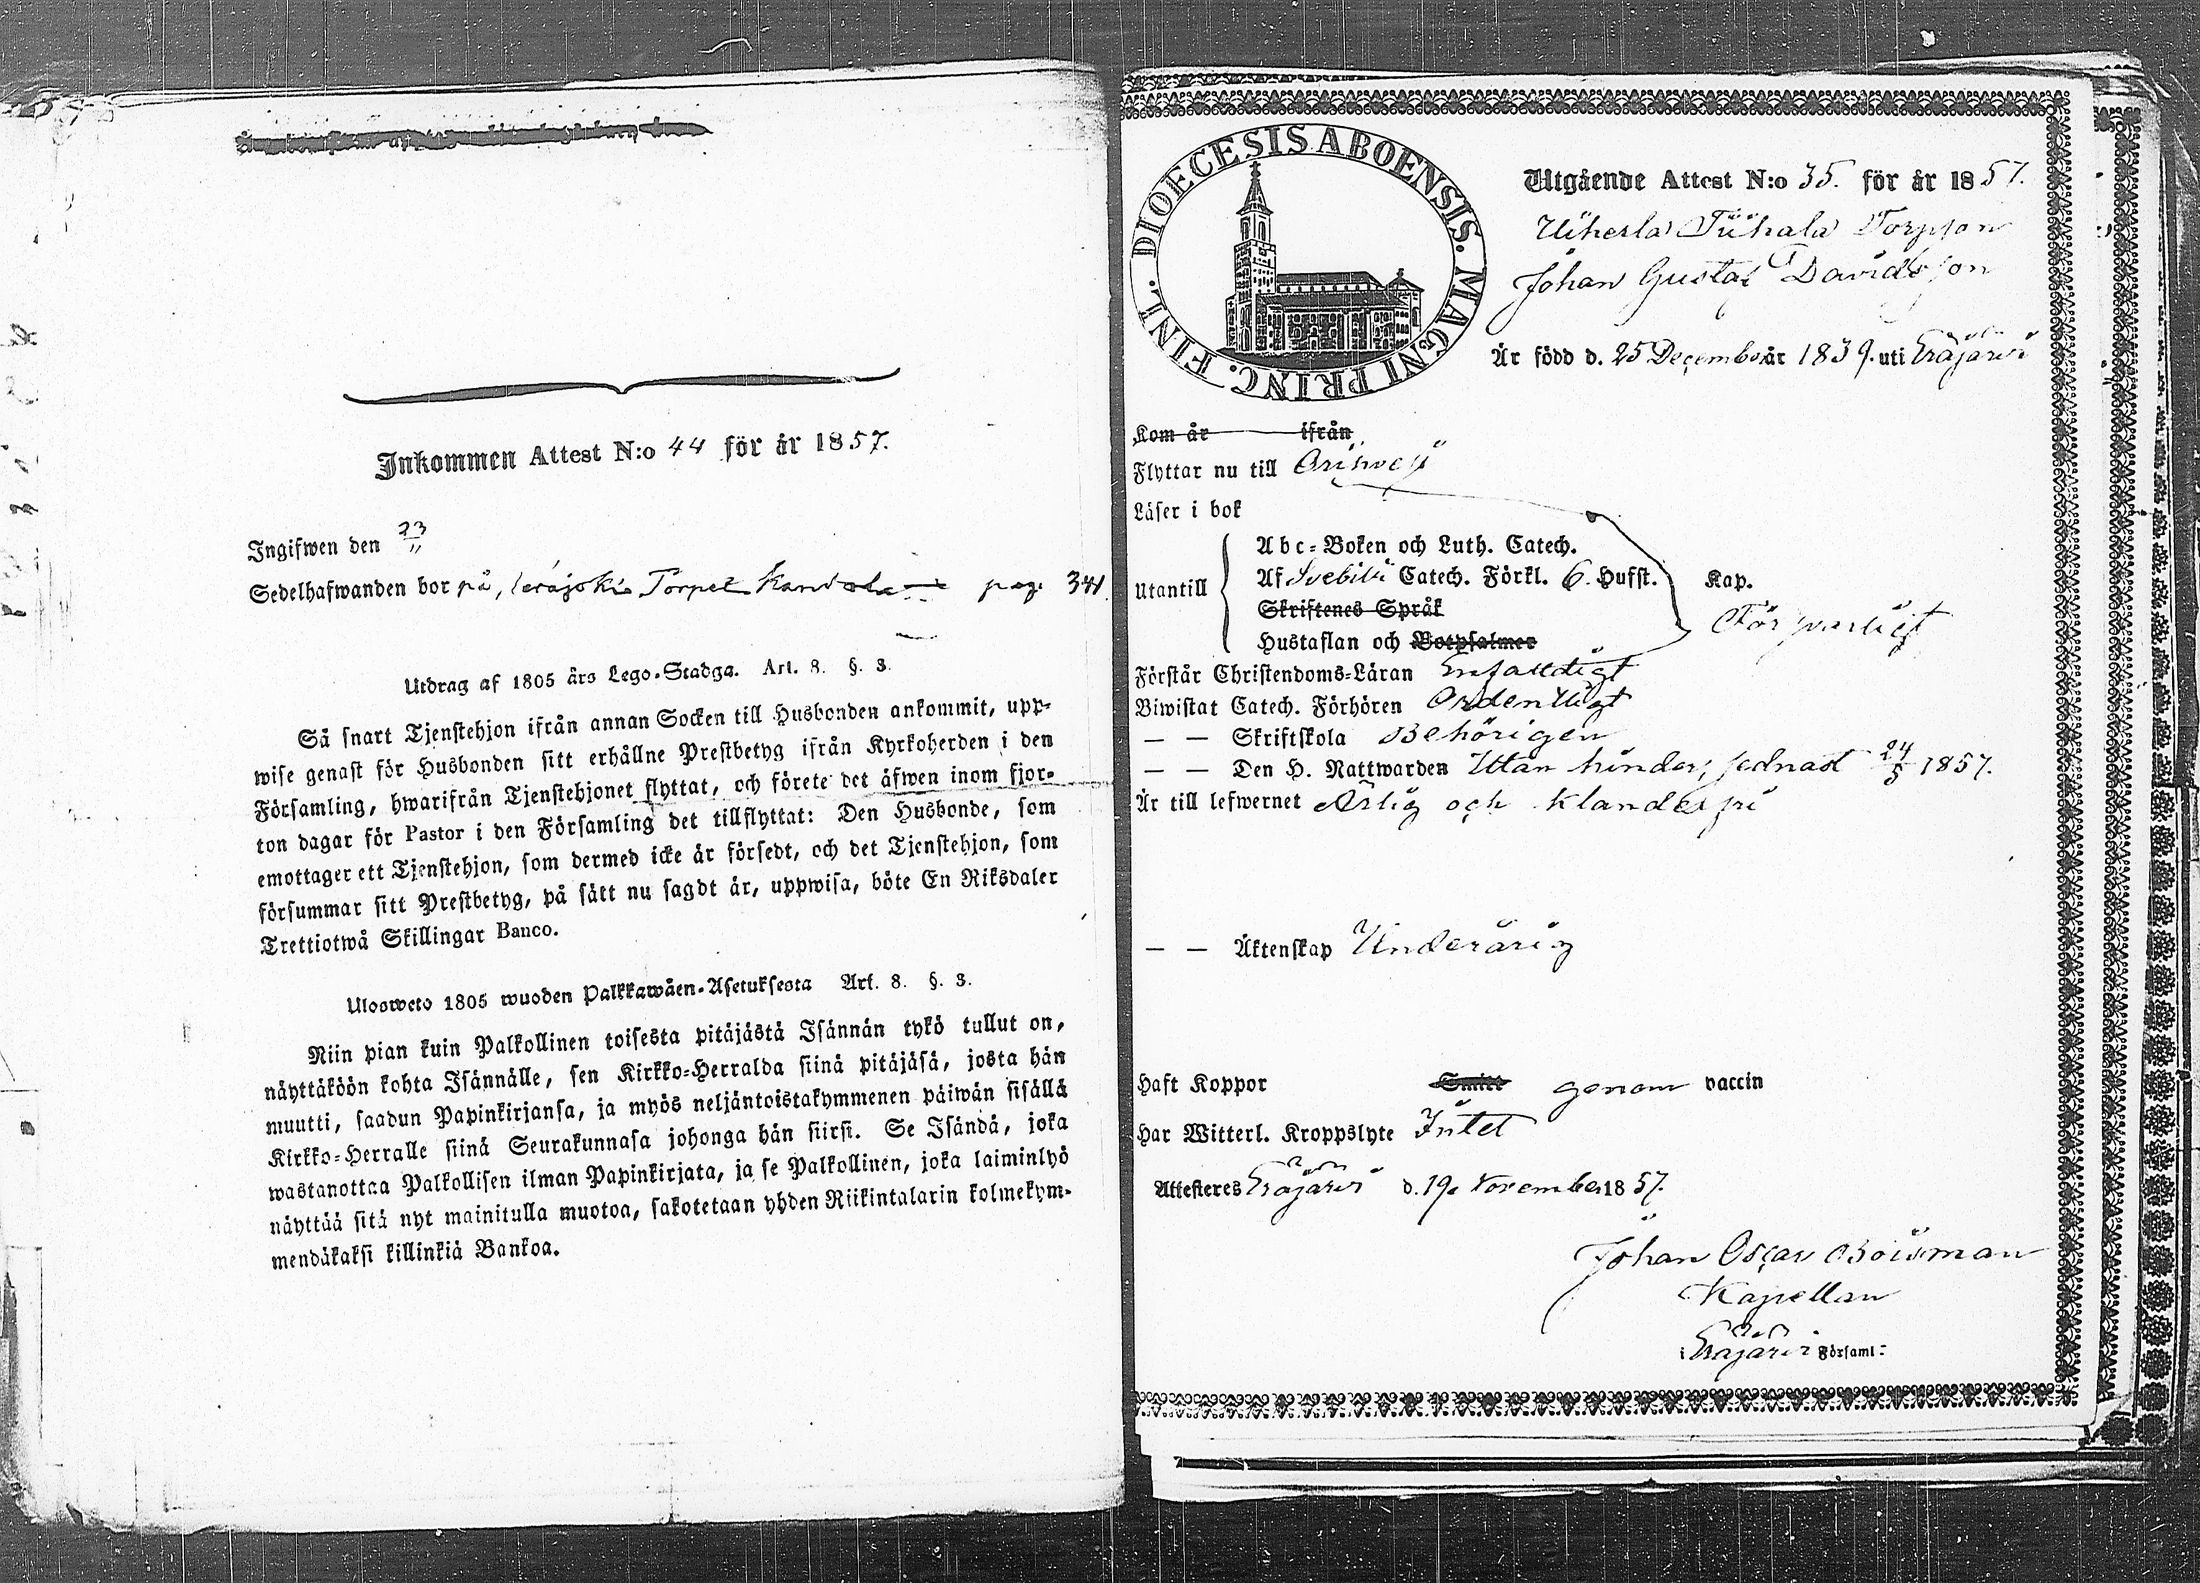 Inkommen Attest N:o 44 för år 1857.
Ingifwen den 23/11
Sedelhafwanden bor på, Torpet pag. 341
Utdrag af 1805 års Lego-Stadga. Art. 8. §. 3.
Så snart Tjenstehjon ifrån annan Socken till Husbonden ankommit, upp-
wise genast för Husbonden sitt erhållne Prestbetyg ifrån Kyrkoherden i den
Församling, hwarifrån Tjenstehjonet flyttat, och förete det äfwen inom fjor-
ton dagar för Pastor i den Församling det tillflyttat: Den Husbonde, som
emottager ett Tjenstehjon, som dermed icke är försedt, och det Tjenstehjon, som
försummar sitt Prestbetyg, på sätt nu sagdt är, uppwisa, böte En Riksdaler
Trettiotwå Skillingar Banco.
Ulosweto 1805 wuoden Palkkawäen-Asetuksesta Art. 8. §. 3.
Niin pian kuin Palkollinen toisesta pitäjästä Isännän tykö tullut on,
näyttäköön kohta Isännälle, sen Kirkko-Herralda siinä pitäjäsä, josta hän
muutti, saadun Papinkirjansa, ja myös neljäntoistakymmenen päiwän sisällä
Kirkko-Herralle siinä Seurakunnasa johonga hän siirsi. Se Isändä, joka
wastanottaa Palkollisen ilman Papinkirjata, ja se Palkollinen, joka laiminlyö
näyttää sitä nyt mainitulla muotoa, sakotetaan yhden Riikintalarin kolmekym-
mendäkaksi killinkiä Bankoa.
DIOECESIS ABOENSIS. MAGNI PRINC. FINL.
Utgående Attest N:o 35. för år 1857.
Uiherla Tuhala Torpson
Johan Gustaf Davidsson
Är född d. 25 December år 1839. uti Eräjärvi
Kom år ifrån
Flyttar nu till Orihvesi
Läser i bok
Abc-Boken och Luth. Catech.
Utantill Af Svebilii Catech. Förkl. 6. Hufst. Kap.
Skriftenes Språk
Försvarligt
Hustaflan och Botpsalmer
Förstår Christendoms-Läran Enfaldigt
Biwistat Catech. Förhören Ordentligt
— — Skriftskola Behörigen
— — Den H. Nattwarden Utan hinder, sednast 24/5 1857.
Är till lefwernet Ärlig och klanderfri
— — Äktenskap Underårig
Haft Koppor Smitt genom vaccin
Har Witterl. Kroppslyte Intet
Attesteres Eräjärvi d. 19. November 1857.
Johan Oscar Boisman
Kapellan
i Eräjärvi Församl: